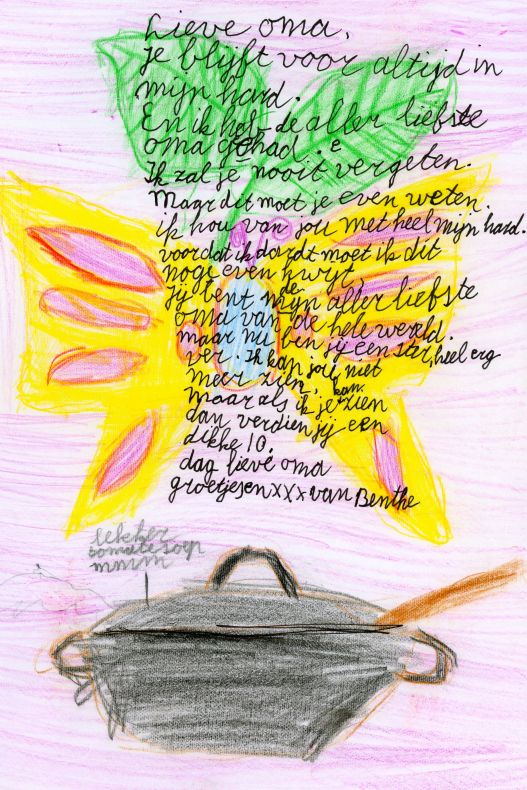 Lieve oma,
je blijft voor altijd in
mijn hard.
En ik heb de aller liefste
oma gehad.
Ik zal je nooit vergeten.
Maar dit moet je even weten.
ik hou van jou met heel mijn hard.
voordat ik dardt moet ik dit
nog even kwyt
jij bent mijn aller liefste
oma van de hele wereld.
maar nu ben jij een ster, heel erg
ver. Ik kan jou niet
meer zien,
maar als ik je kan zien
dan verdien jij een
dikke 10.
dag lieve oma
groetjes en xxx van Benthe
lekker
tomatesoep
mmmm